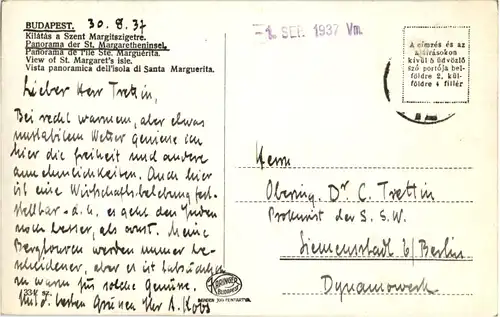 BUDAPEST. 30. 8. 37
Kilátás a Szent Margitszigetre.
Panorama der St. Margaretheninsel.
Panorama de l'ile Ste. Marguérita.
View of St. Margaret's isle.
Vista panoramica dell'isola di Santa Marguerita.
Lieber Herr Trettin,
Bei recht warmem, aber etwas
unstabilem Wetter geniesse ich
hier die Freiheit und andere
Annehmlichkeiten. Auch hier
ist eine Wirtschaftsbelebung fest-
stellbar - d.h. es geht den Juden
noch besser, als sonst. Meine
Bergtouren werden immer be-
scheidener, aber es ist tatsächlich
zu warm für solche Genüsse.
Mit d. besten Grüssen Ihr A.
-1. SEP. 1937 Vm.
A címzés és az
aláirásokon
kívül 5 üdvözlő
szó portója bel-
földre 2, kül-
földre 4 fillér
Herrn
Obering. Dr C. Trettin
Prokurist der S. S. W.
Siemensstadt b/Berlin
Dynamowerk
BARINGER
BUDAPEST